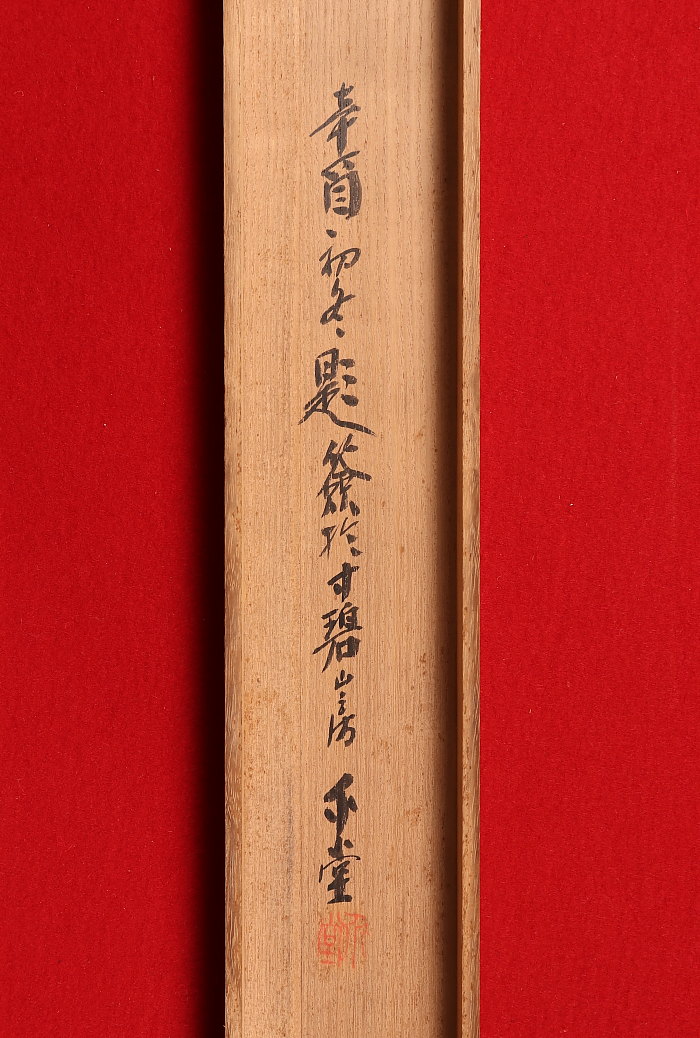 辛酉初冬題簽於寸碧山房 堂